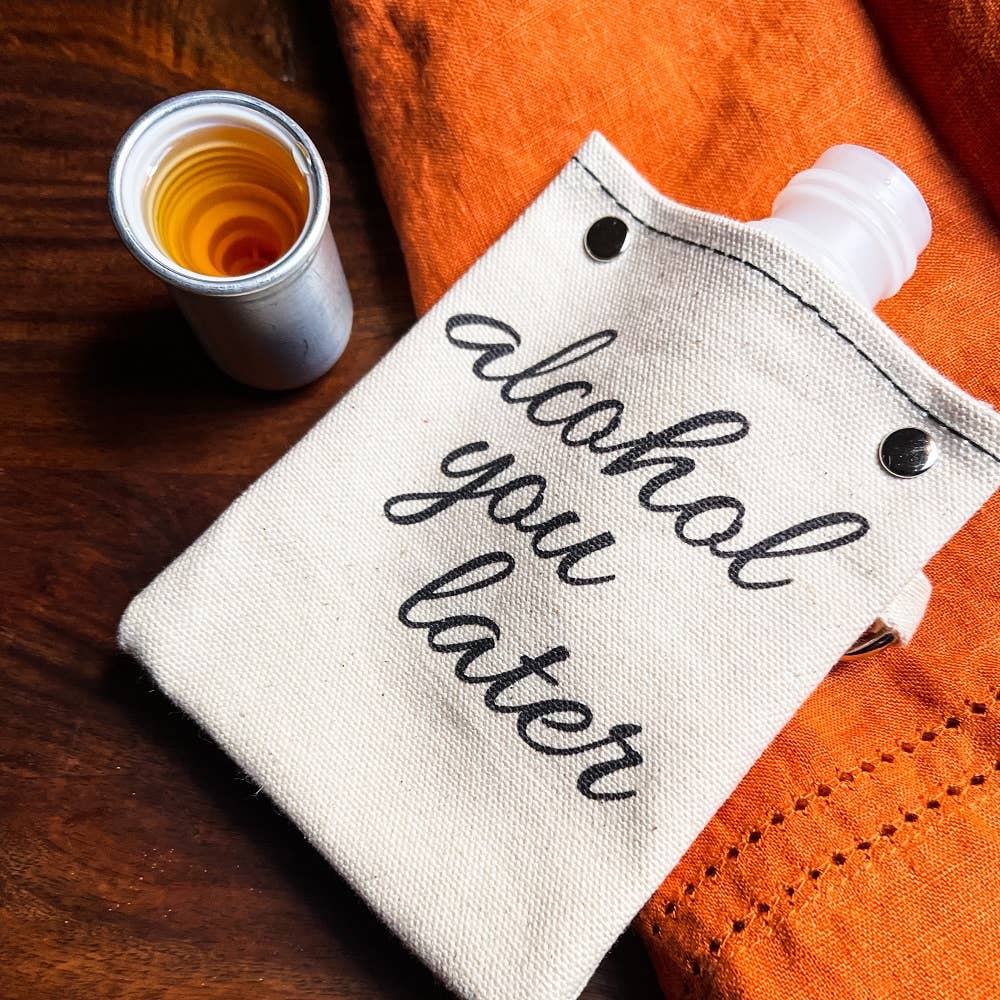 alcohol
you
later